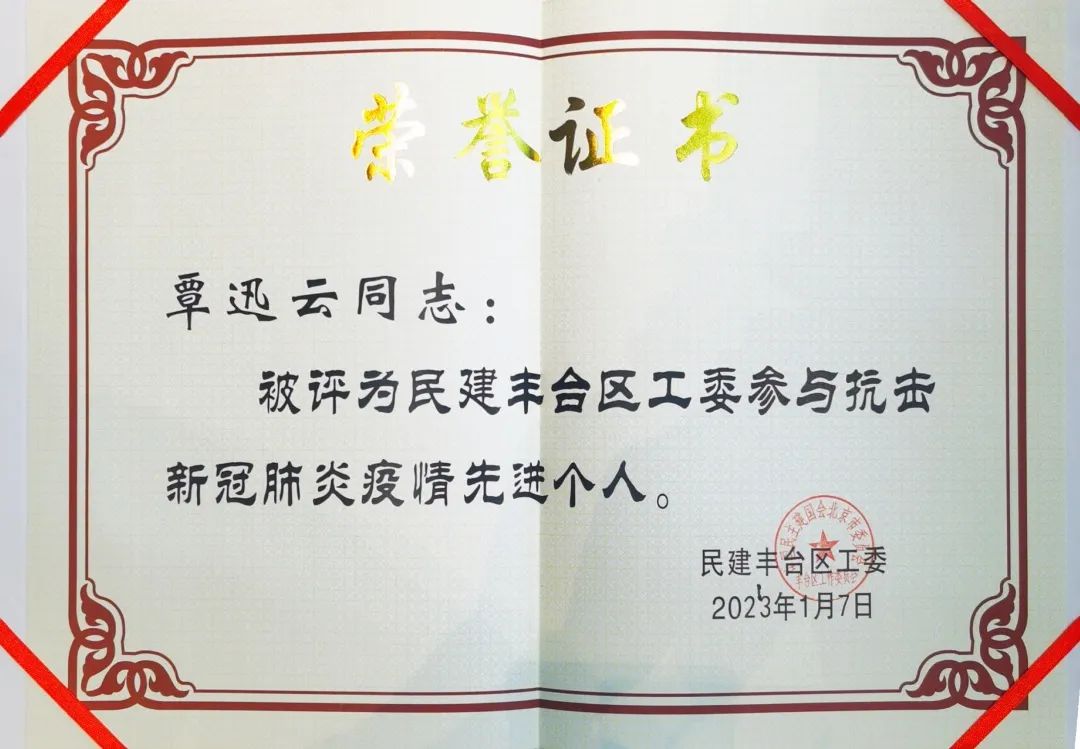 荣誉证书
覃迅云同志：
被评为民建丰台区工委参与抗击
新冠肺炎疫情先进个人。
民主建国会北京市委员会
丰台区工作委员会
民建丰台区工委
2023年1月7日